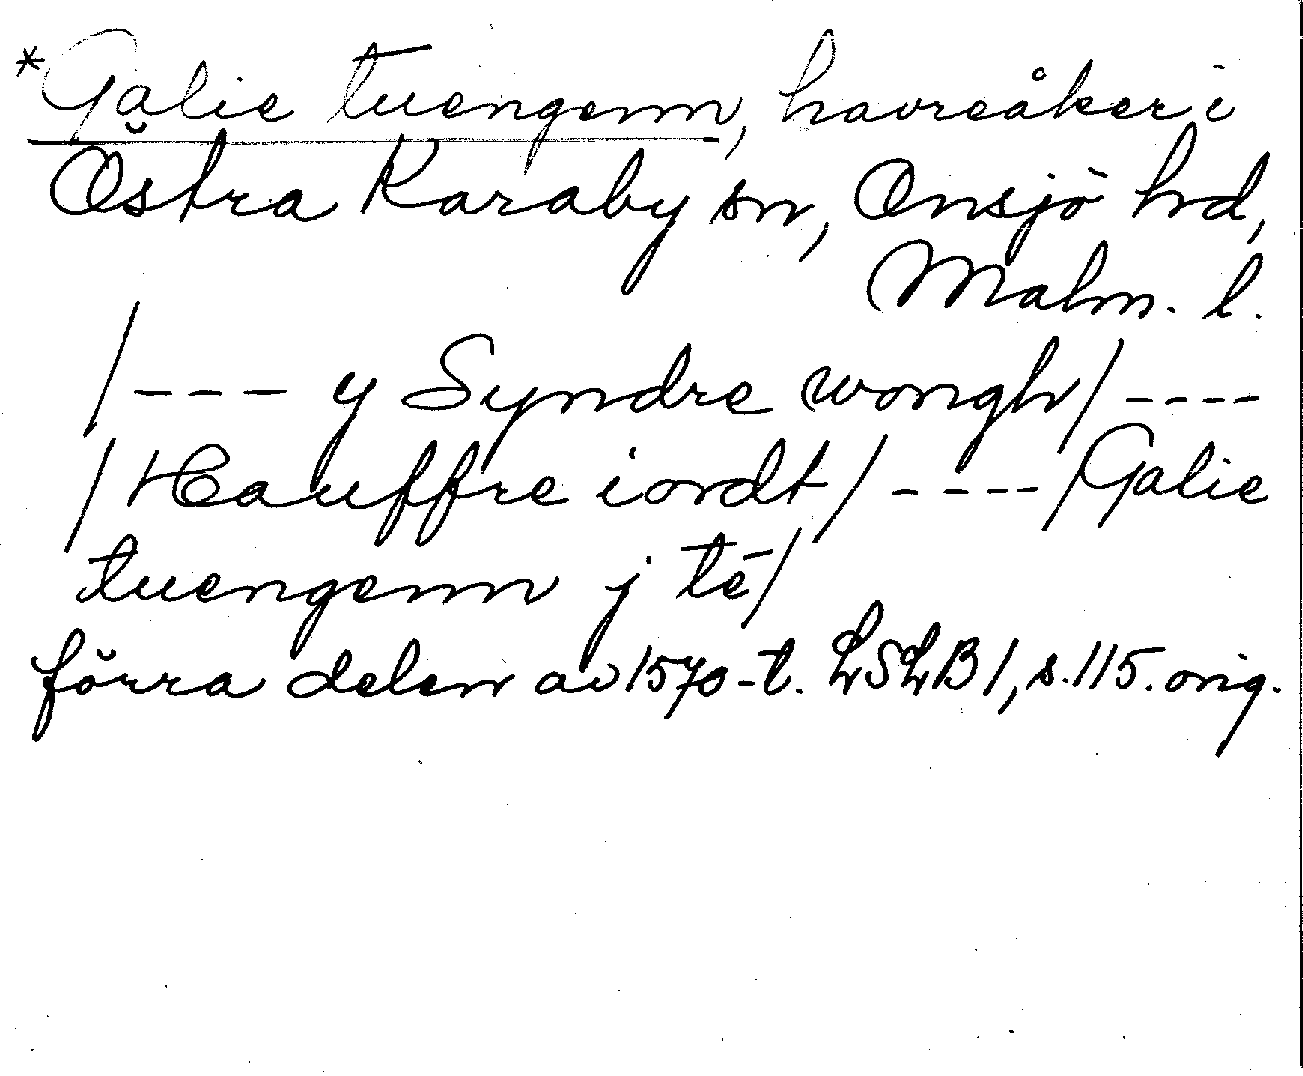 *Galie tuengenn, havreåker i
Östra Karaby sn, Onsjö hd,
Malm. l.
/--- y Syndre wongh/----
/Hauffre iordt/----/Galie
tuengenn j tē/
förra delen av 1570-t. LSLB1, s. 115. orig.